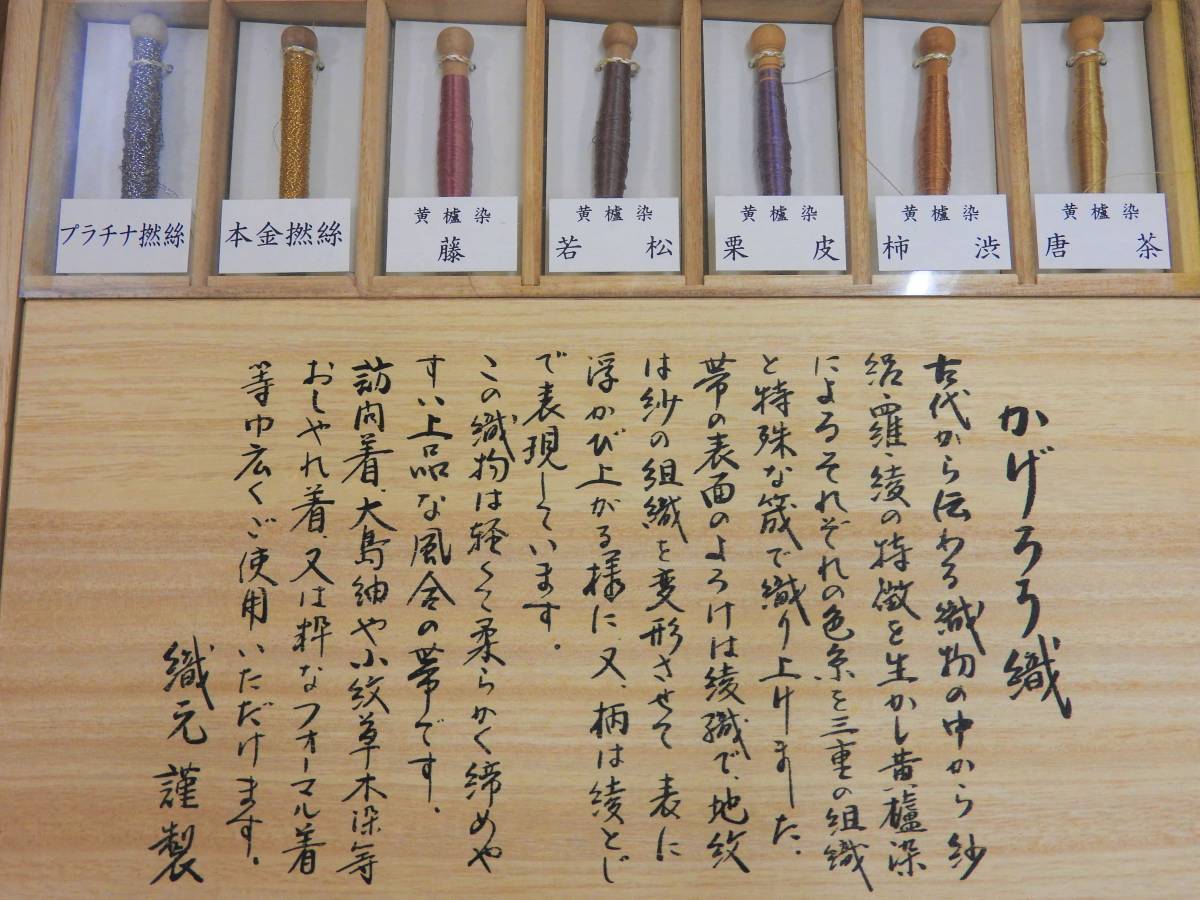 プラチナ撚絲
本金撚絲
黄櫨染
藤
黄櫨染
若松
黄櫨染
栗皮
黄櫨染
柿渋
黄櫨染
唐茶
かげろう織
古代から伝わる織物の中から紗
絽・羅・綾の特徴を生かし黄櫨染
によるそれぞれの色糸を三重の組織
と特殊な筬で織り上げました。
帯の表面のよろけは綾織で、地紋
は紗の組織を変形させて表に
浮かび上がる様に、又、柄は綾とじ
で表現しています。
この織物は軽くて柔らかく締めや
すい上品な風合の帯です。
訪問着、大島紬や小紋草木染等
おしゃれ着、又は粋なフォーマル着
等巾広くご使用いただけます。
織元謹製